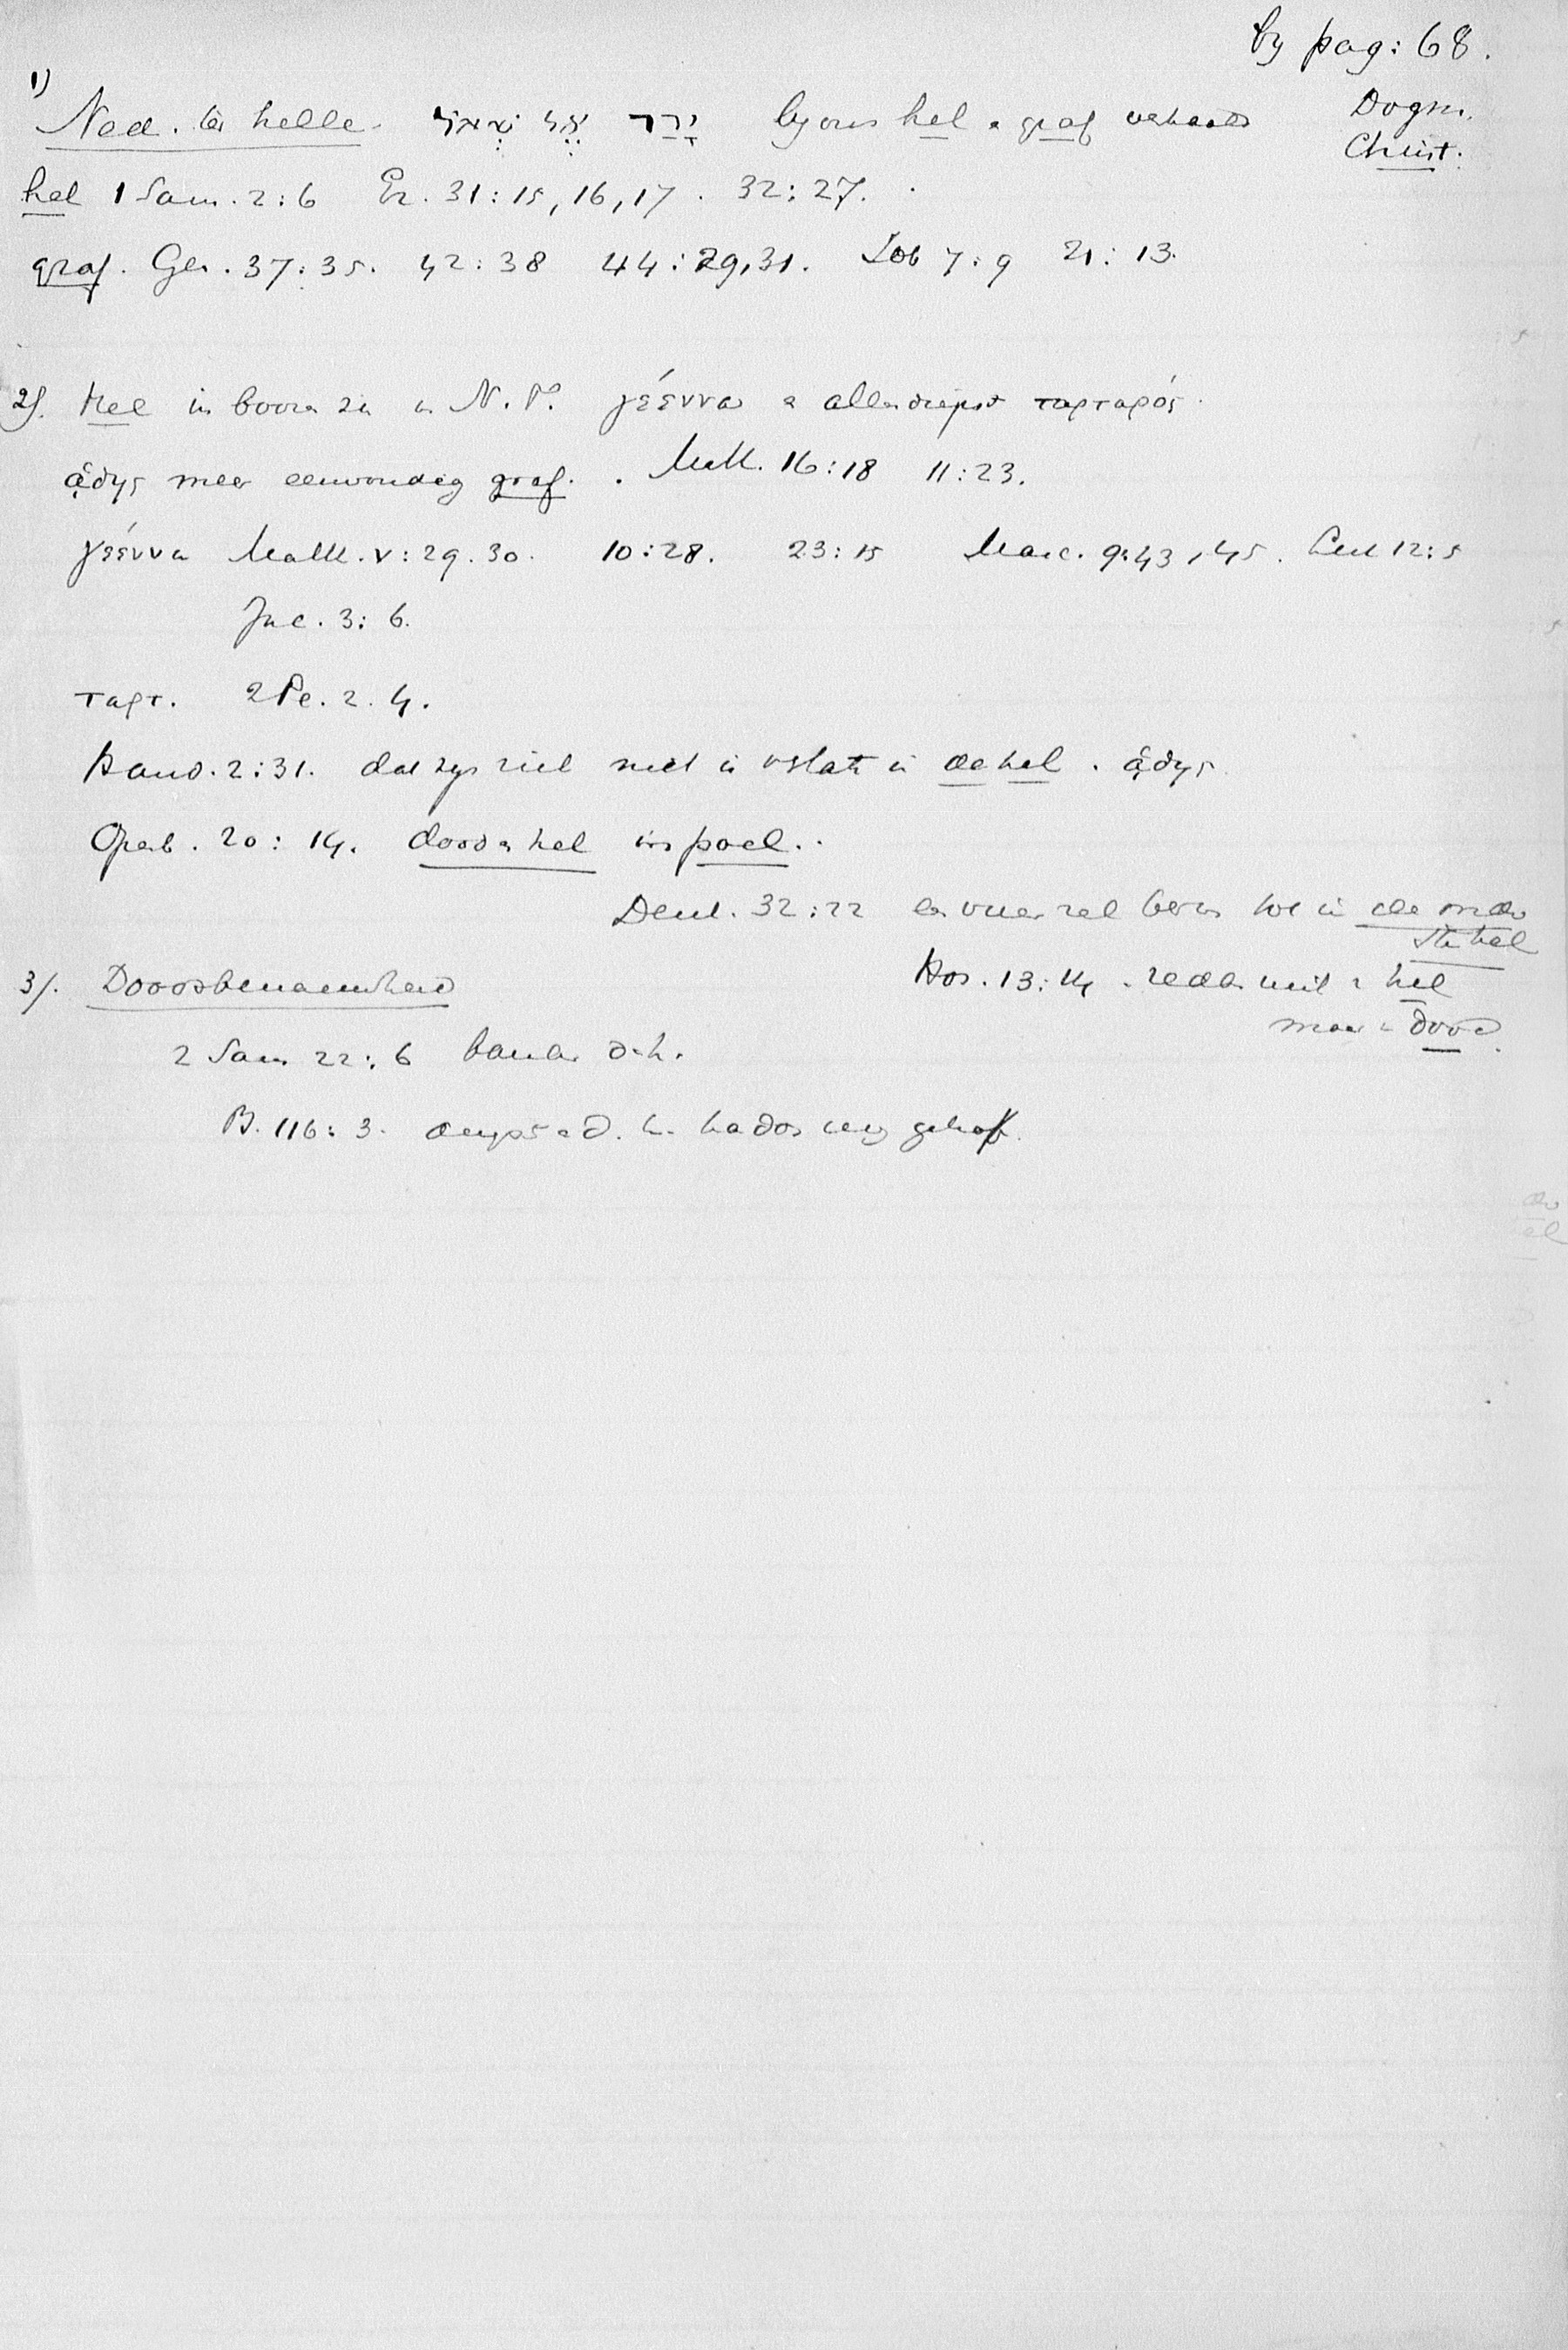 by pag: 68.
Dogm.
Christ.
1) Ned. ter helle. ירד אל שאול by ons hel & graf vertaald
hel 1 Sam. 2:6 Ez. 31:15, 16, 17. 32:27.
graf. Gen. 37:35. 42:38 44:29,31. Job 7:9 21:13.
2). Hel in boozen zin in N.T. γέεννα & allerdiepst ταρταρός.
ᾅδης meer eenvoudig graf. Matt. 16:18 11:23.
γέεννα Matth. V:29.30. 10:28. 23:15 Marc. 9:43, 45. Luc 12:5
Jac. 3:6.
ταρτ. 2 Pe. 2.4.
Hand. 2:31. dat zyn ziel niet is verlaten in de hel. ᾅδης
Openb. 20:14. dood & hel in poel..
Deut. 32:22 en vuur zal bern tot in de onder
ste hel
3). Doodsbenauwdheid
Hos. 13:14. redden uit hel
maar dood.
2 Sam 22:6 banden d. h.
Ps. 116:3. angst d. h. hadden my getroff.